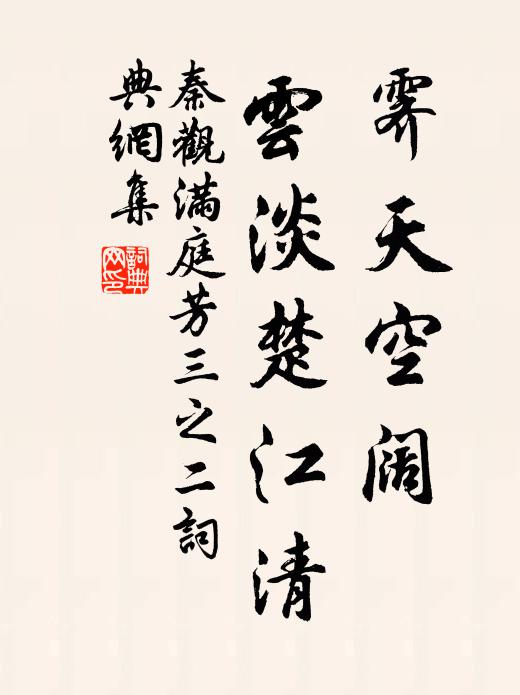 霽天空阔
雲淡楚江清
秦觀滿庭芳三之二詞
典網集
詞典網印